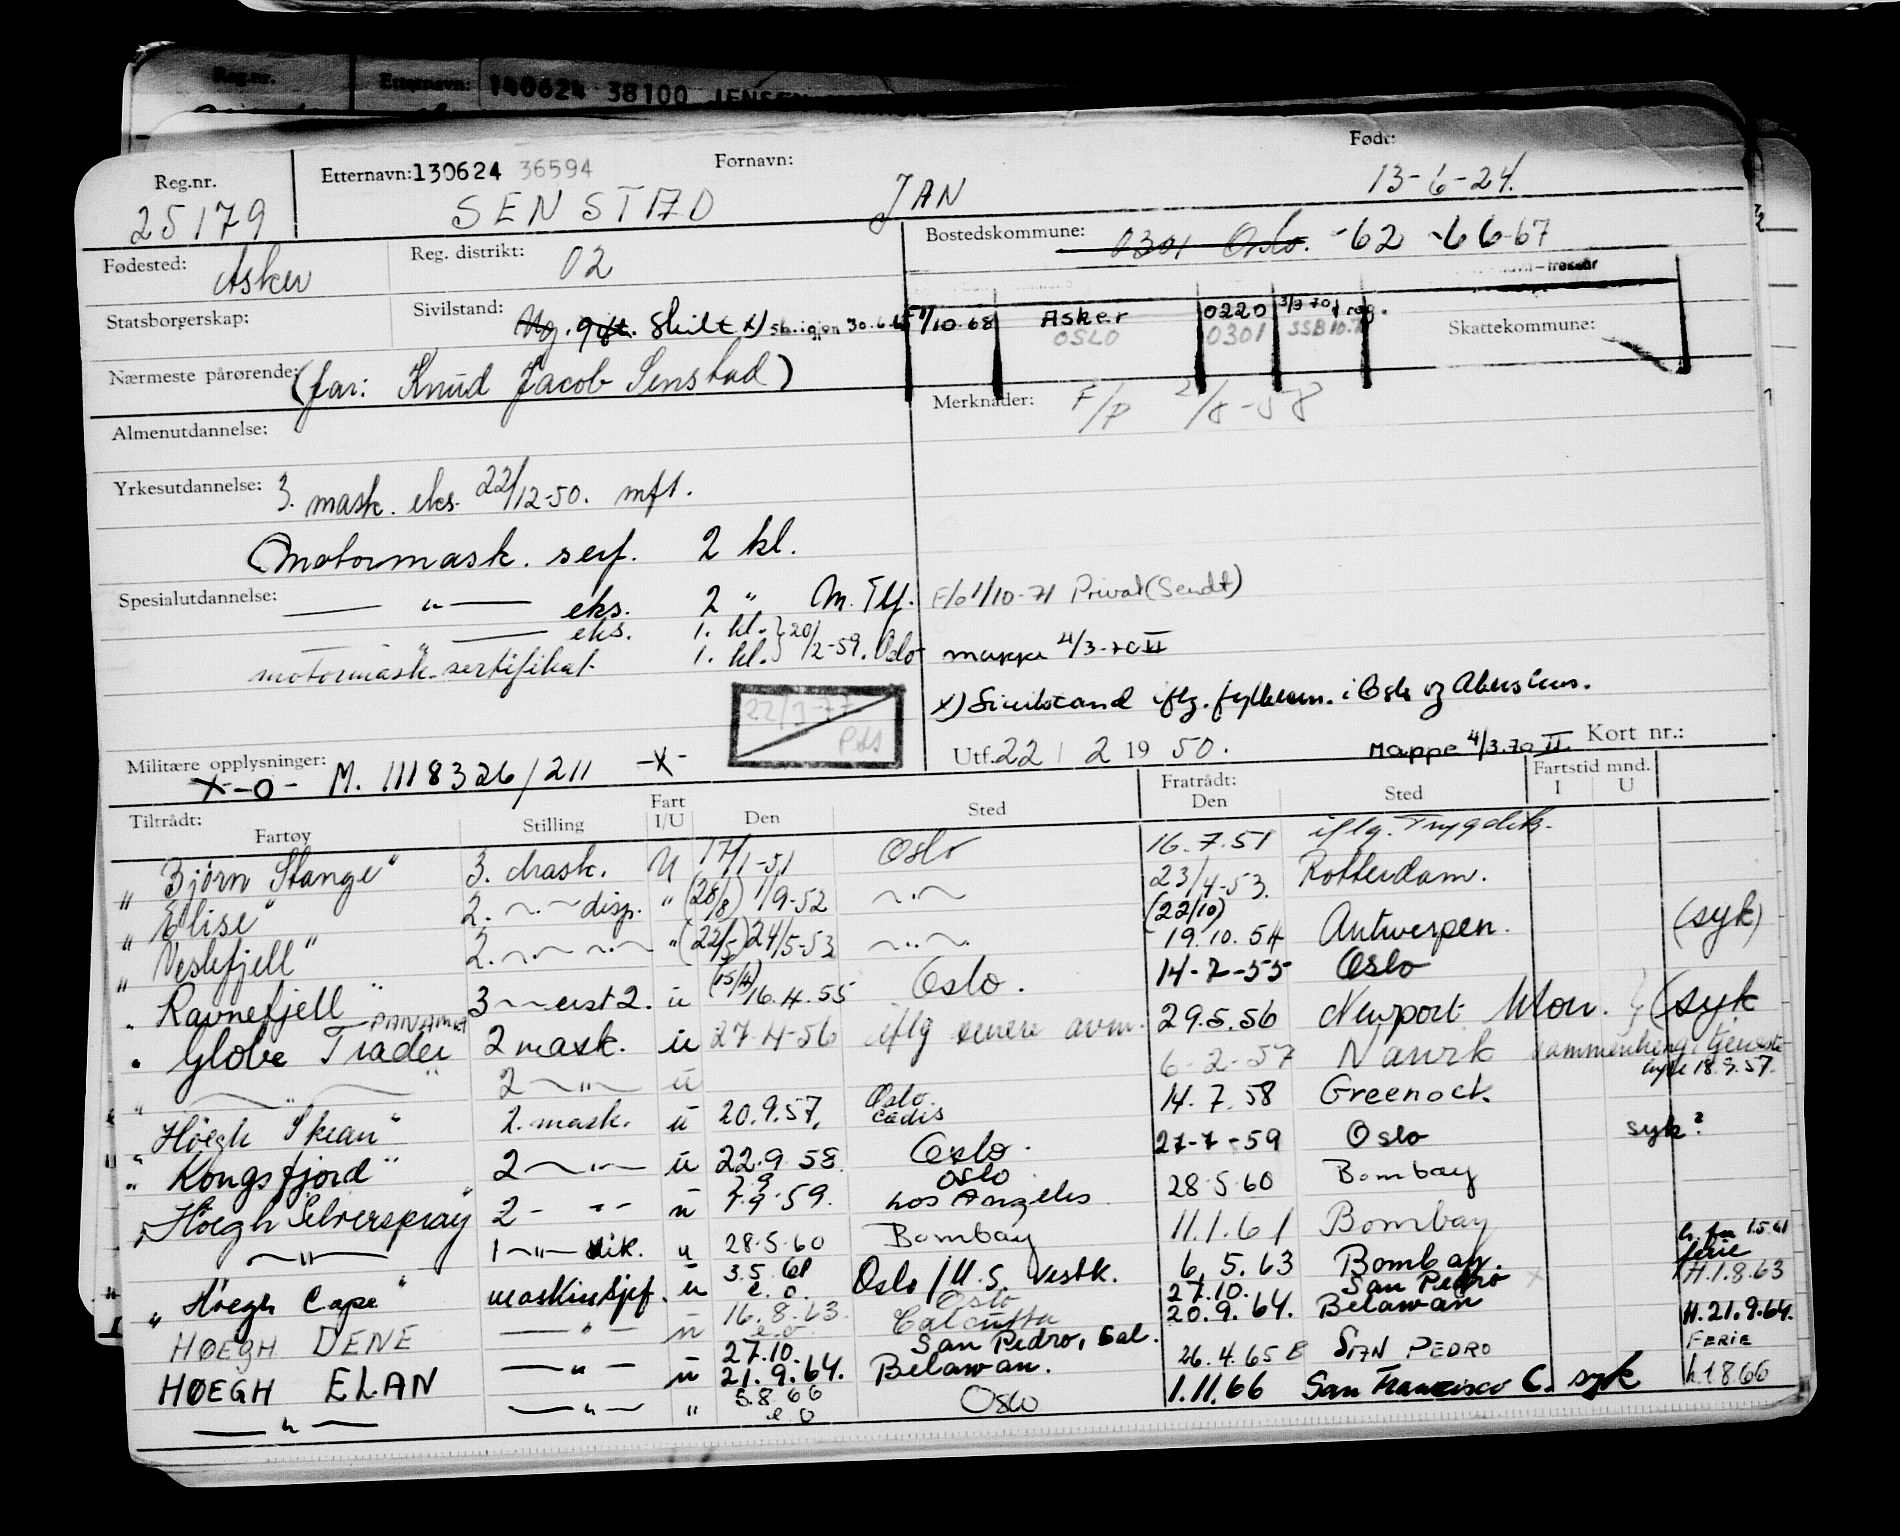 Reg.nr. Etternavn: 140624 38100 JENSEN
Reg.nr. Etternavn: 130624 36594 Fornavn: Født:
25179 SENSTAD JAN 13-6-24.
Fødested: Asker Reg. distrikt: 02 Bostedskommune: 0301 Oslo. -62 -66-67
Statsborgerskap: Sivilstand: Ug. gift. Skilt x) 30.6.
1/10.68 Asker 0220 3/3 70 reg.
OSLO 0301 SSB 10.7
Skattekommune:
Nærmeste pårørende: (far: Knud Jacob Senstad)
Merknader: F/P 2/8-58
Almenutdannelse:
Yrkesutdannelse: 3. mask. eks. 22/12-50. mft.
Motormask. serf. 2 kl.
Spesialutdannelse: — " — eks. 2 " M. Tlf.
F/o 1/10-71 Privat (Sendt)
— " — eks. 1. kl. } 20/2-59. Oslo
motormask. sertifikat 1. kl. }
mappe 4/3-70 II
x) Sivilstand iflg. fylkesm. i Oslo og Akershus.
22/3-77
Utf. 22 / 2 19 50. Mappe 4/3.70 II Kort nr.:
Militære opplysninger: x-o- M. 1118326/211 -x-
Tiltrådt: Fart Fratrådt: Fartstid mnd.
Fartøy Stilling I/U Den Sted Den Sted I U
"Bjørn Stange" 3. mask. U 17/1-51 Oslo 16.7.51 iflg. Trygdek.
"Elise" 2. -"- disp. " (28/8) 1/9-52 -"- 23/4-53. Rotterdam.
"Veslefjell" 2. -"- -"- " (22/5) 24/5-53 -"- (22/10) 19.10.54 Antwerpen. (syk)
"Ravnefjell" 3 -"- erst 2. u (15/4) 16.4.55 Oslo. 14-7-55 Oslo
"Globe Trader" PANAMA 2 mask. u 27-4-56 iflg senere avm. 29.5.56 Newport Mon. } (syk
" -"- " 2 -"- u 6-2-57 Narvik sammenheng. tjeneste 18.9.57.
"Höegh Skean" 2. mask. u 20.9.57, Oslo. Cadis 14.7.58 Greenock.
"Kongsfjord" 2 -"- u 22.9.58. Oslo. 27-7-59 Oslo syk?
"Höegh Silverspray" 2 - "- u 7.9.59. Oslo Los Angeles 28.5.60 Bombay
-"- 1 -"- vik. u 28.5.60 Bombay 11.1.61 Bombay
"Höegh Cape" maskinsjef. u 3.5.61 e.o. Oslo / U.S. vestk. 6.5.63 Bombay. h. fra 1.5.61 ferie
HØEGH DENE -"- u 16.8.63. e.o 27.10. Oslo Calcutta San Pedro, Cal. 27.10. 20.9.64. San Pedro Belawan H.1.8.63
HØEGH ELAN -"- u 21.9.64. Belawan. 26.4.65 SAN PEDRO H.21.9.64. FERIE
-"- -"- " 5.8.66 e o Oslo 1.11.66 San Francisco C. syk h.1.8.66